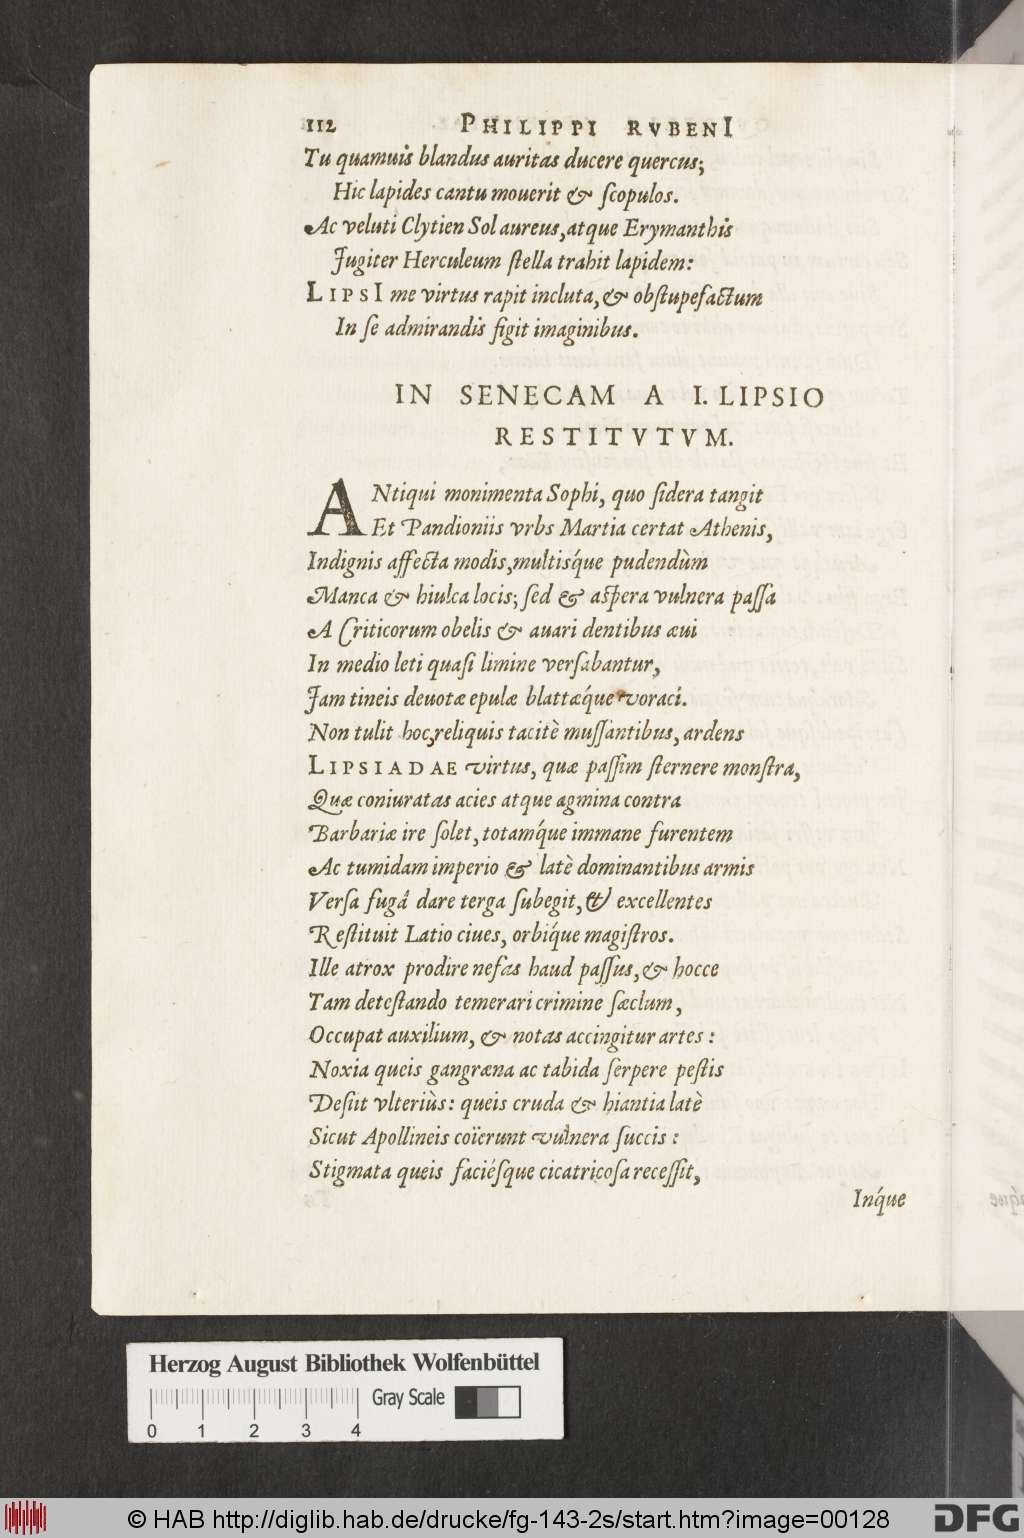 112 PHILIPPI RVBENI
Tu quamuis blandus auritas ducere quercus;
Hic lapides cantu mouerit & ſcopulos.
Ac veluti Clytien Sol aureus, atque Erymanthis
Jugiter Herculeum ſtella trahit lapidem:
LIPSI me virtus rapit incluta, & obſtupefactum
In ſe admirandis figit imaginibus.
IN SENECAM A I. LIPSIO
RESTITVTVM.
ANtiqui monimenta Sophi, quo ſidera tangit
Et Pandioniis vrbs Martia certat Athenis,
Indignis affecta modis, multisq́ue pudendùm
Manca & hiulca locis; ſed & aſpera vulnera paſſa
A Criticorum obelis & auari dentibus æui
In medio leti quaſi limine verſabantur,
Jam tineis deuotæ epulæ blattæq́ue voraci.
Non tulit hoc, reliquis tacitè muſſantibus, ardens
LIPSIADAE virtus, quæ paſſim ſternere monſtra,
Quæ coniuratas acies atque agmina contra
Barbariæ ire ſolet, totamq́ue immane furentem
Ac tumidam imperio & latè dominantibus armis
Verſa fugâ dare terga ſubegit, & excellentes
Reſtituit Latio ciues, orbiq́ue magiſtros.
Ille atrox prodire nefas haud paſſus, & hocce
Tam deteſtando temerari crimine ſæclum,
Occupat auxilium, & notas accingitur artes:
Noxia queis gangræna ac tabida ſerpere peſtis
Deſiit vlteriùs: queis cruda & hiantia latè
Sicut Apollineis coïerunt vulnera ſuccis:
Stigmata queis faciéſque cicatricoſa receſſit,
Inq́ue
Herzog August Bibliothek Wolfenbüttel
Gray Scale
0 1 2 3 4
© HAB http://diglib.hab.de/drucke/fg-143-2s/start.htm?image=00128
DFG